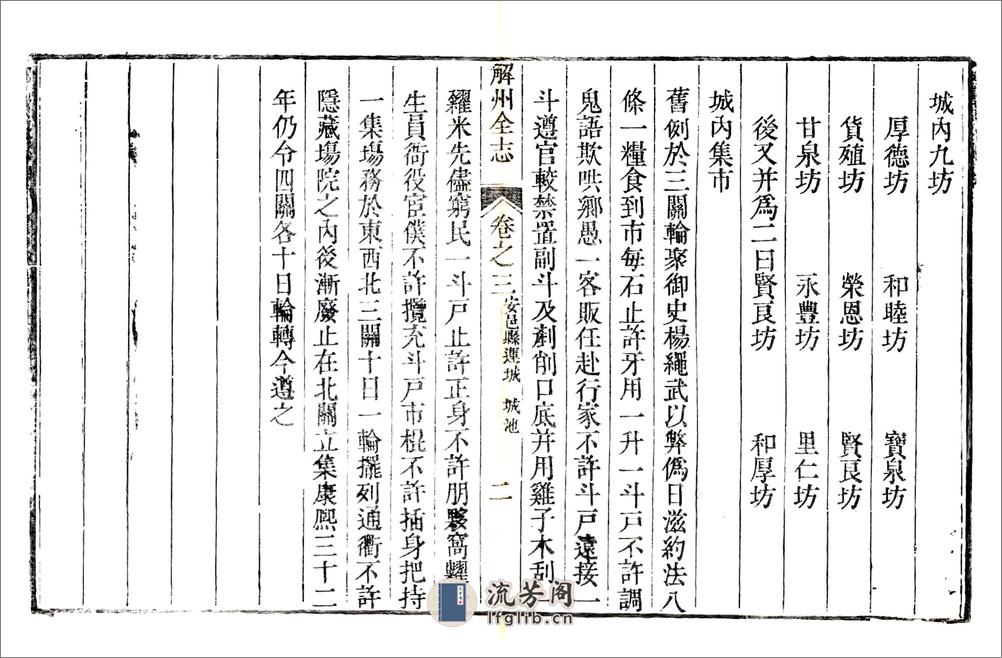 城內九坊
厚德坊　和睦坊　寶泉坊
貨殖坊　榮恩坊　賢良坊
甘泉坊　永豐坊　里仁坊
後又并爲二曰賢良坊　和厚坊
城內集市
舊例於三關輪聚御史楊繩武以弊僞日滋約法八
條一糧食到市每石止許牙用一升一斗戸不許調
鬼語欺哄鄉愚一客販任赴行家不許斗戸遠接一
斗遵官較禁置副斗及剷削口底并用雞子木刮一
解州全志　卷之三　安邑縣運城　城池　二
糴米先儘窮民一斗戸止許正身不許朋夥窩糶
生員衙役宦僕不許攬充斗戸市棍不許插身把持
一集場務於東西北三關十日一輪擺列通衢不許
隱藏塲院之內後漸廢止在北關立集康熙三十二
年仍令四關各十日輪轉今遵之
流芳阁
lfglib.cn